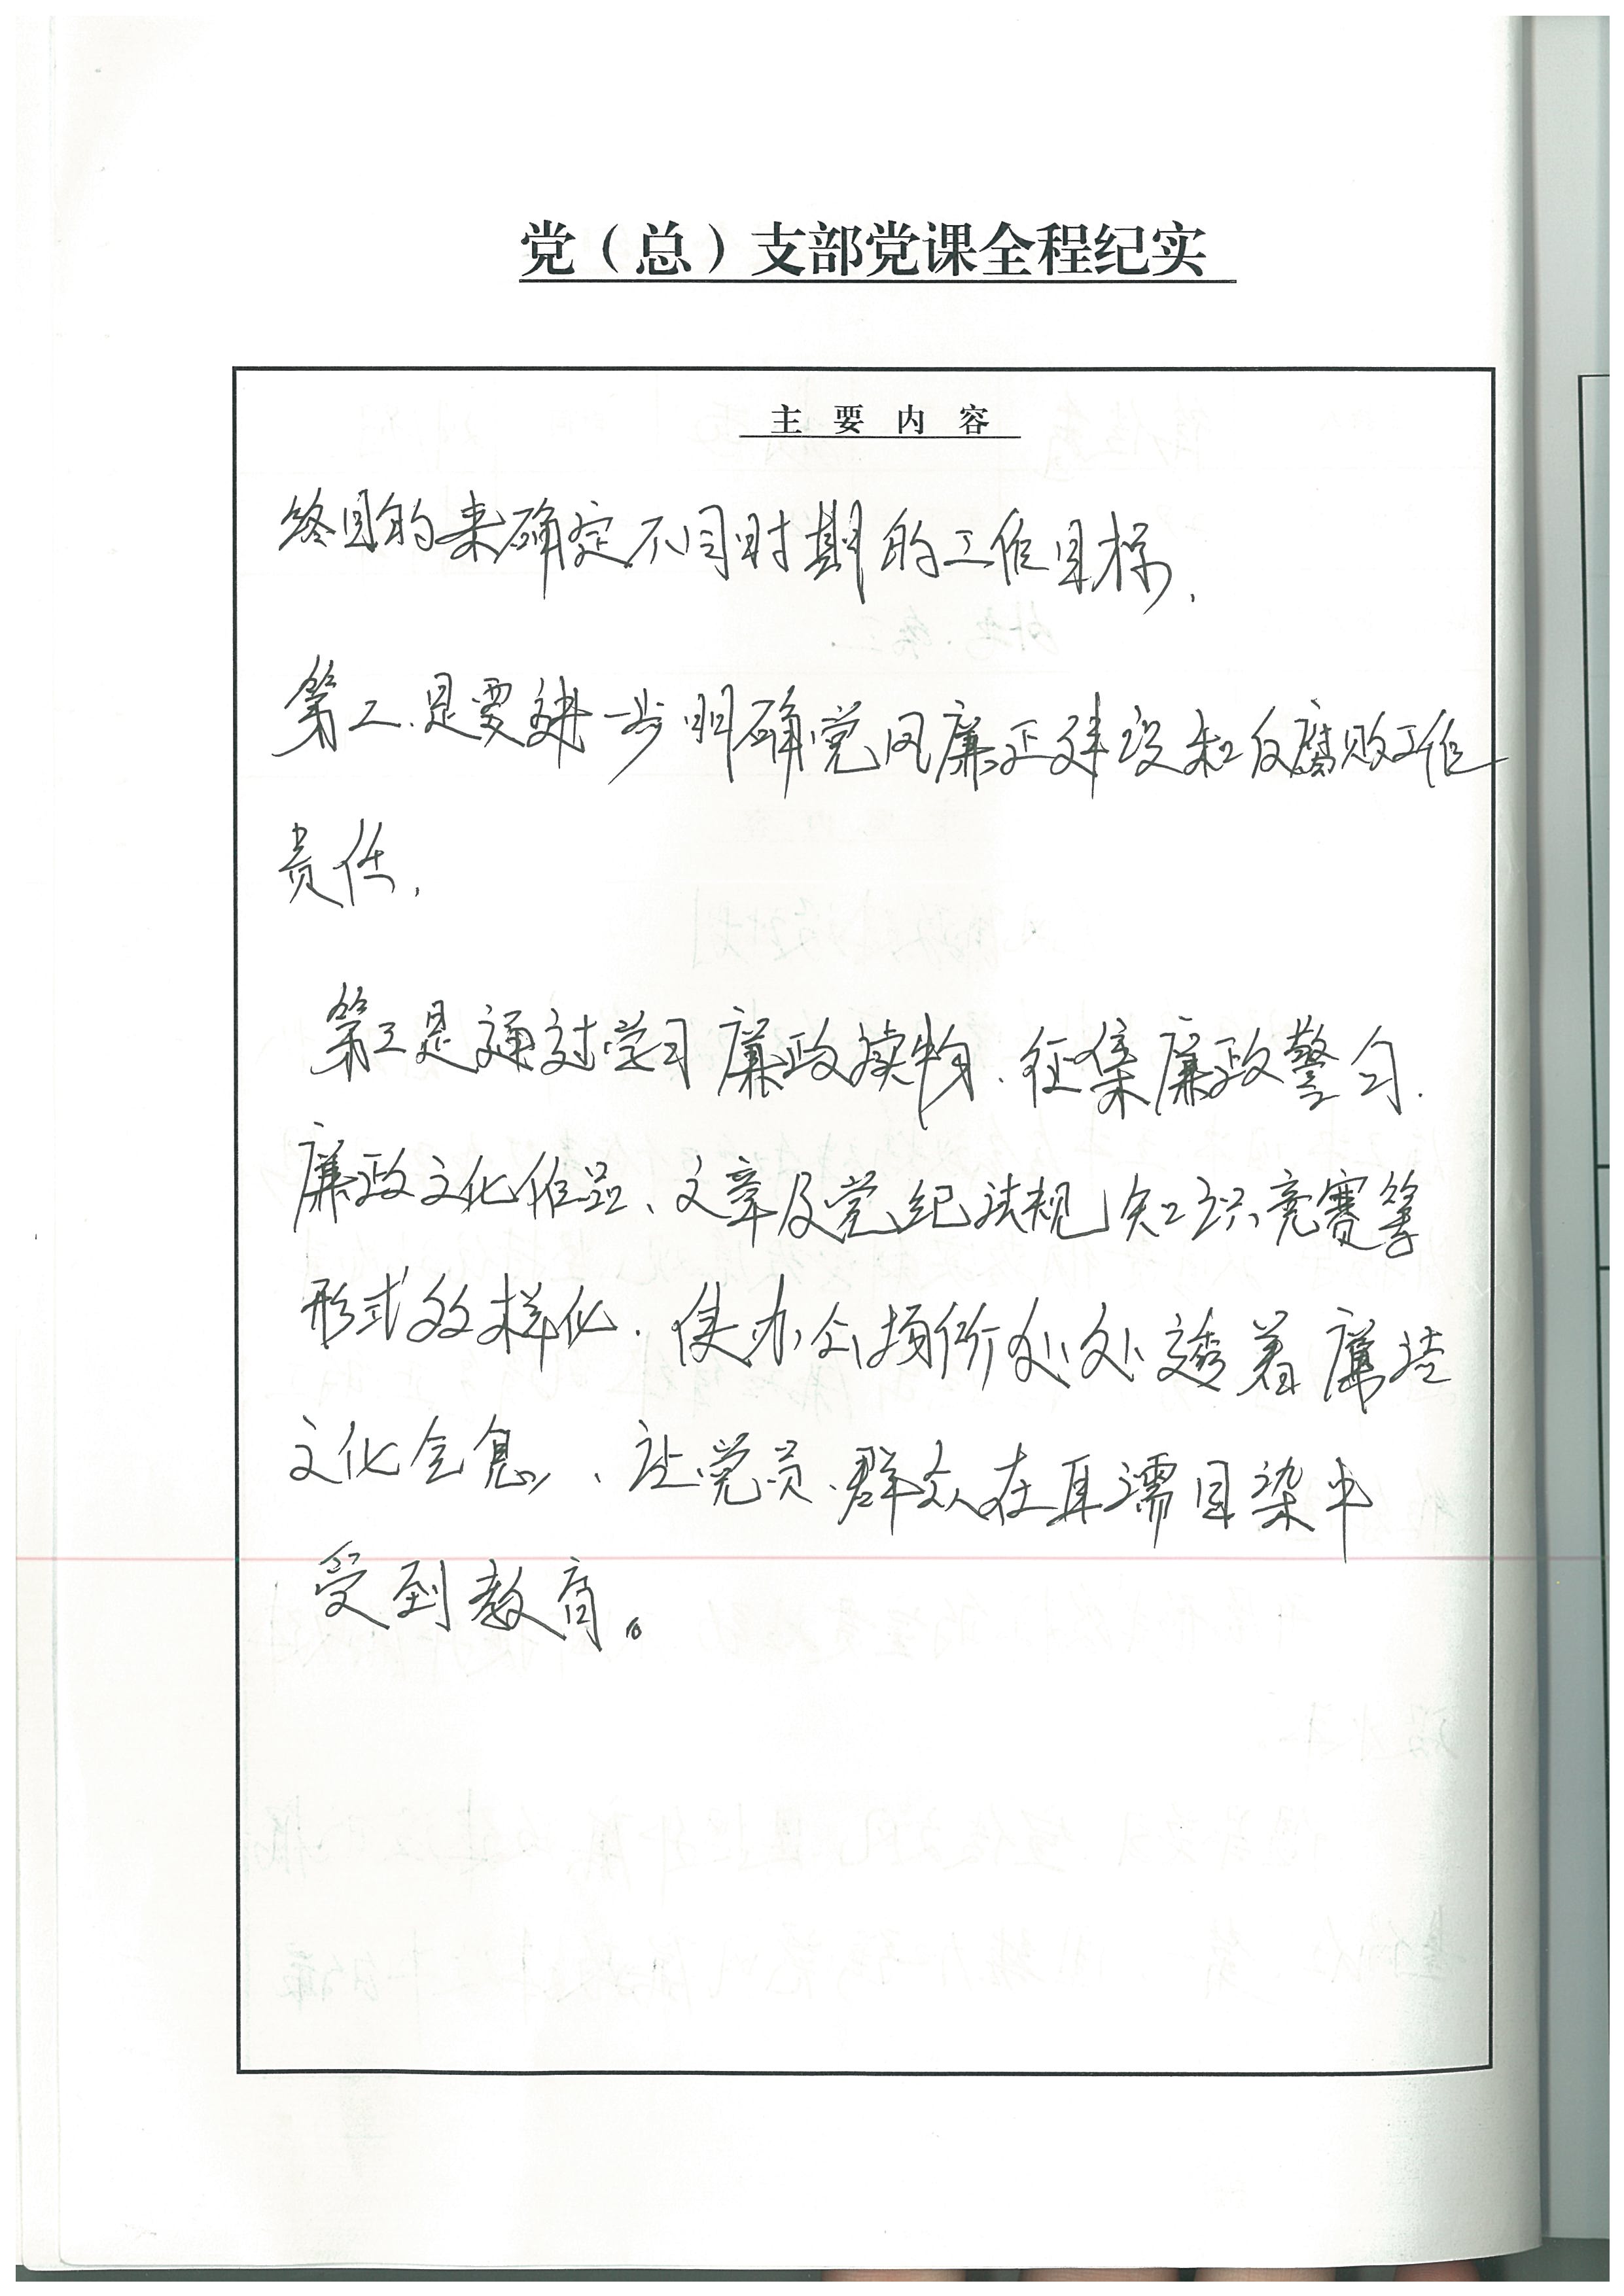 党（总）支部党课全程纪实
主要内容
终目的来确定不同时期的工作目标，
第二、是要进一步明确党风廉正建设和反腐败工作
责任，
第三是通过学习廉政读物、征集廉政警句、
廉政文化作品、文章及党纪法规知识竞赛等
形式多样化、使办公场所处处透着廉洁
文化气息、让党员、群众在耳濡目染中
受到教育。